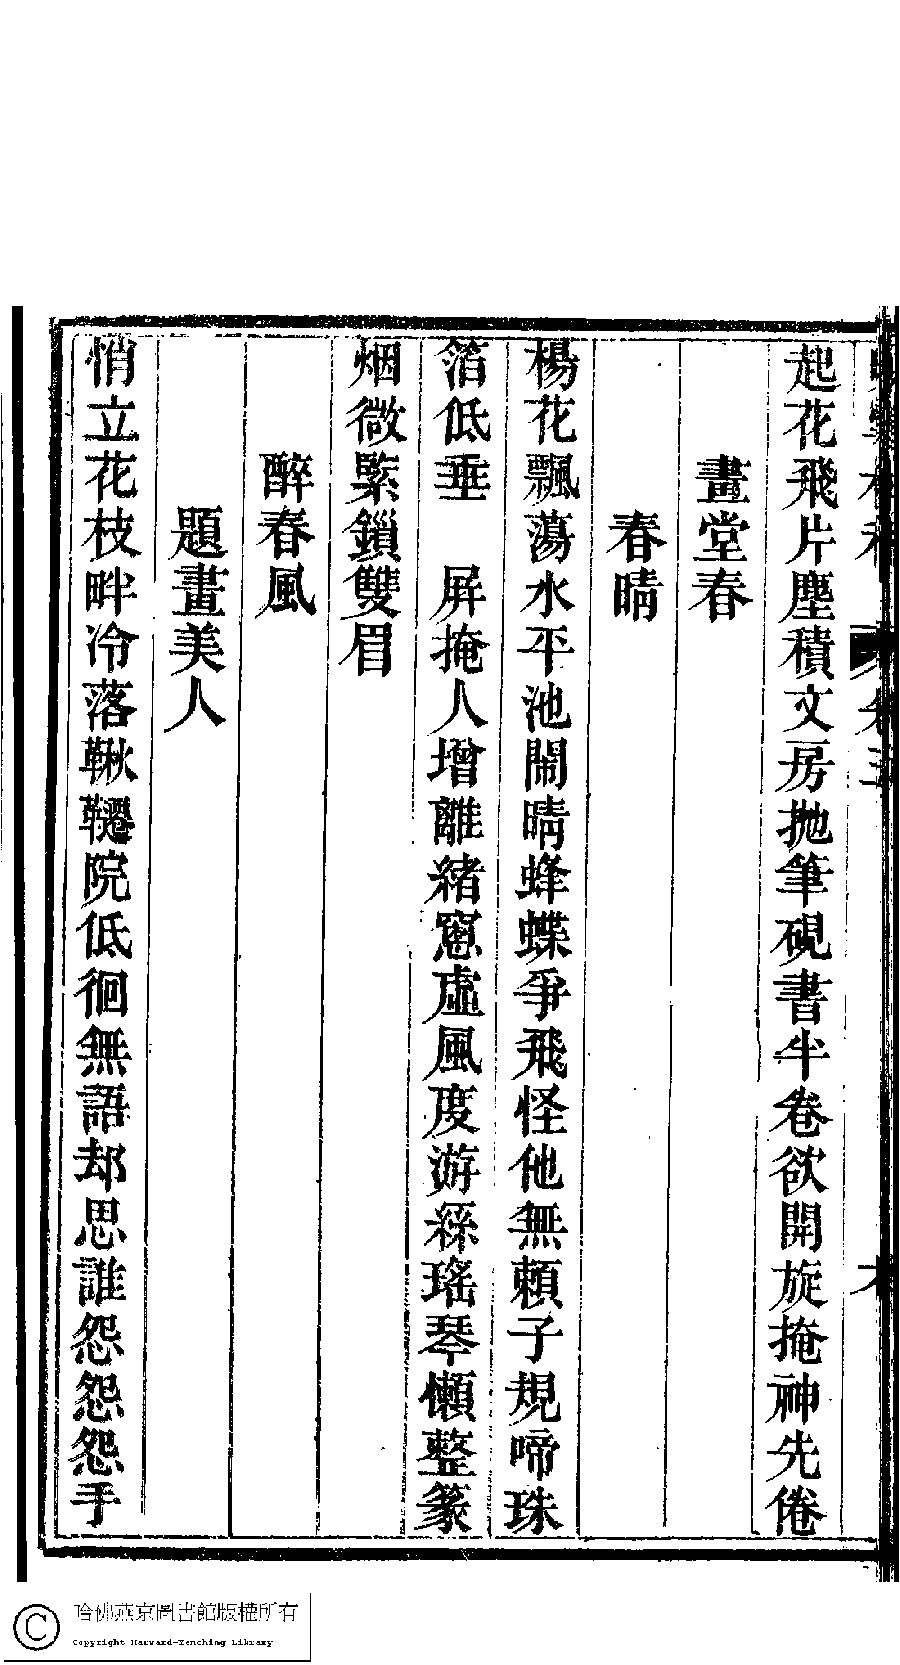 起花飛片塵積文房拋筆硯書半卷欲開旋掩神先倦
畫堂春
春晴
楊花飄蕩水平池鬧晴蜂蝶爭飛怪他無賴子規啼珠
箔低垂　屏掩人增離緒窻虛風度游絲瑤琴懶整篆
烟微緊鎖雙眉
醉春風
題畫美人
悄立花枝畔冷落鞦韆院低徊無語却思誰怨怨怨手
哈佛燕京圖書館版權所有
Copyright Harvard-Yenching Library